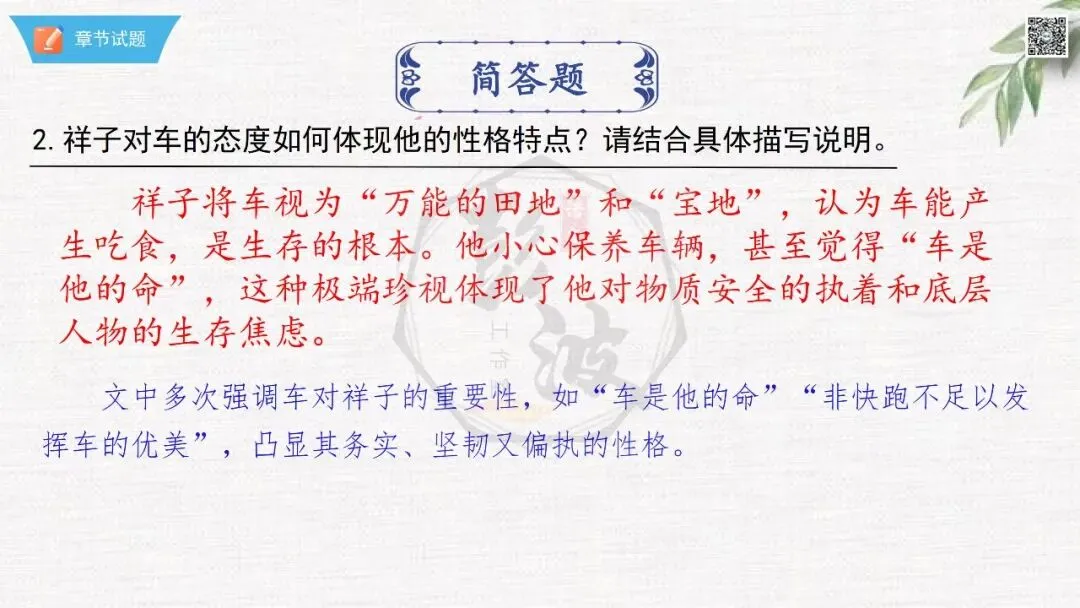 章节试题
简答题
2. 祥子对车的态度如何体现他的性格特点？请结合具体描写说明。
祥子将车视为“万能的田地”和“宝地”，认为车能产
生吃食，是生存的根本。他小心保养车辆，甚至觉得“车是
他的命”，这种极端珍视体现了他对物质安全的执着和底层
人物的生存焦虑。
文中多次强调车对祥子的重要性，如“车是他的命”“非快跑不足以发
挥车的优美”，凸显其务实、坚韧又偏执的性格。